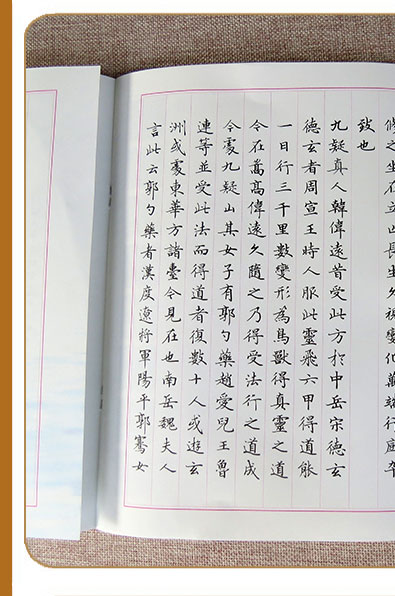 之坐在立亡長生久視變化萬端行廚卒
致也
九疑真人韓偉遠昔受此方於中岳宋德玄
德玄者周宣王時人服此靈飛六甲得道能
一日行三千里數變形為鳥獸得真靈之道
今在嵩高偉遠久隨之乃得受法行之道成
今處九疑山其女子有郭勺藥趙愛兒王魯
連等並受此法而得道者復數十人或遊玄
洲或處東華方諸臺今見在也南岳魏夫人
言此云郭勺藥者漢度遼將軍陽平郭騫女